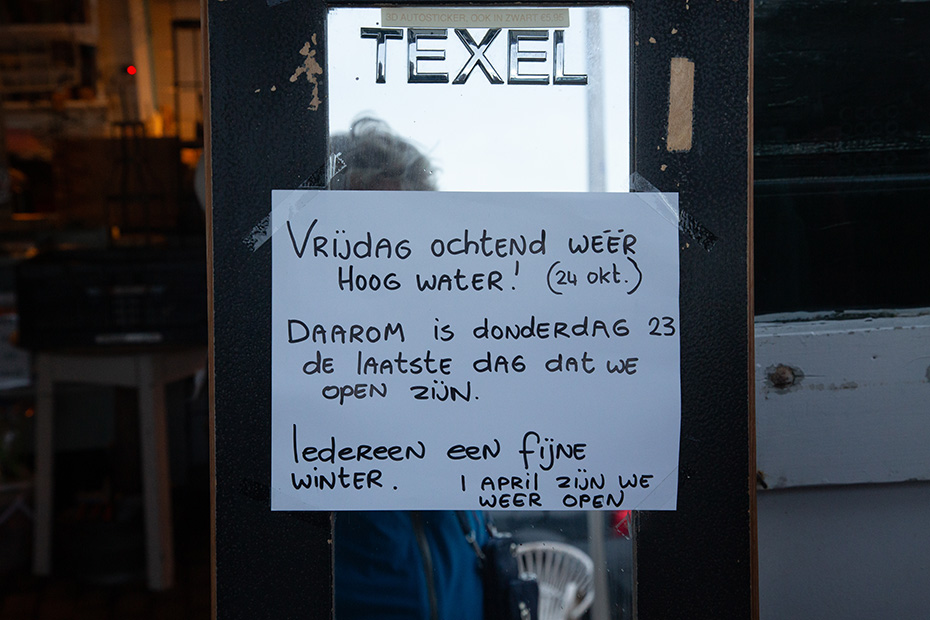 3D AUTOSTICKER, OOK IN ZWART €5,95
TEXEL
VRIJDAG OCHTEND WÉÉR
HOOG WATER! (24 OKT.)
DAAROM IS DONDERDAG 23
DE LAATSTE DAG DAT WE
OPEN ZIJN.
IEDEREEN EEN FIJNE
WINTER. 1 APRIL ZIJN WE
WEER OPEN